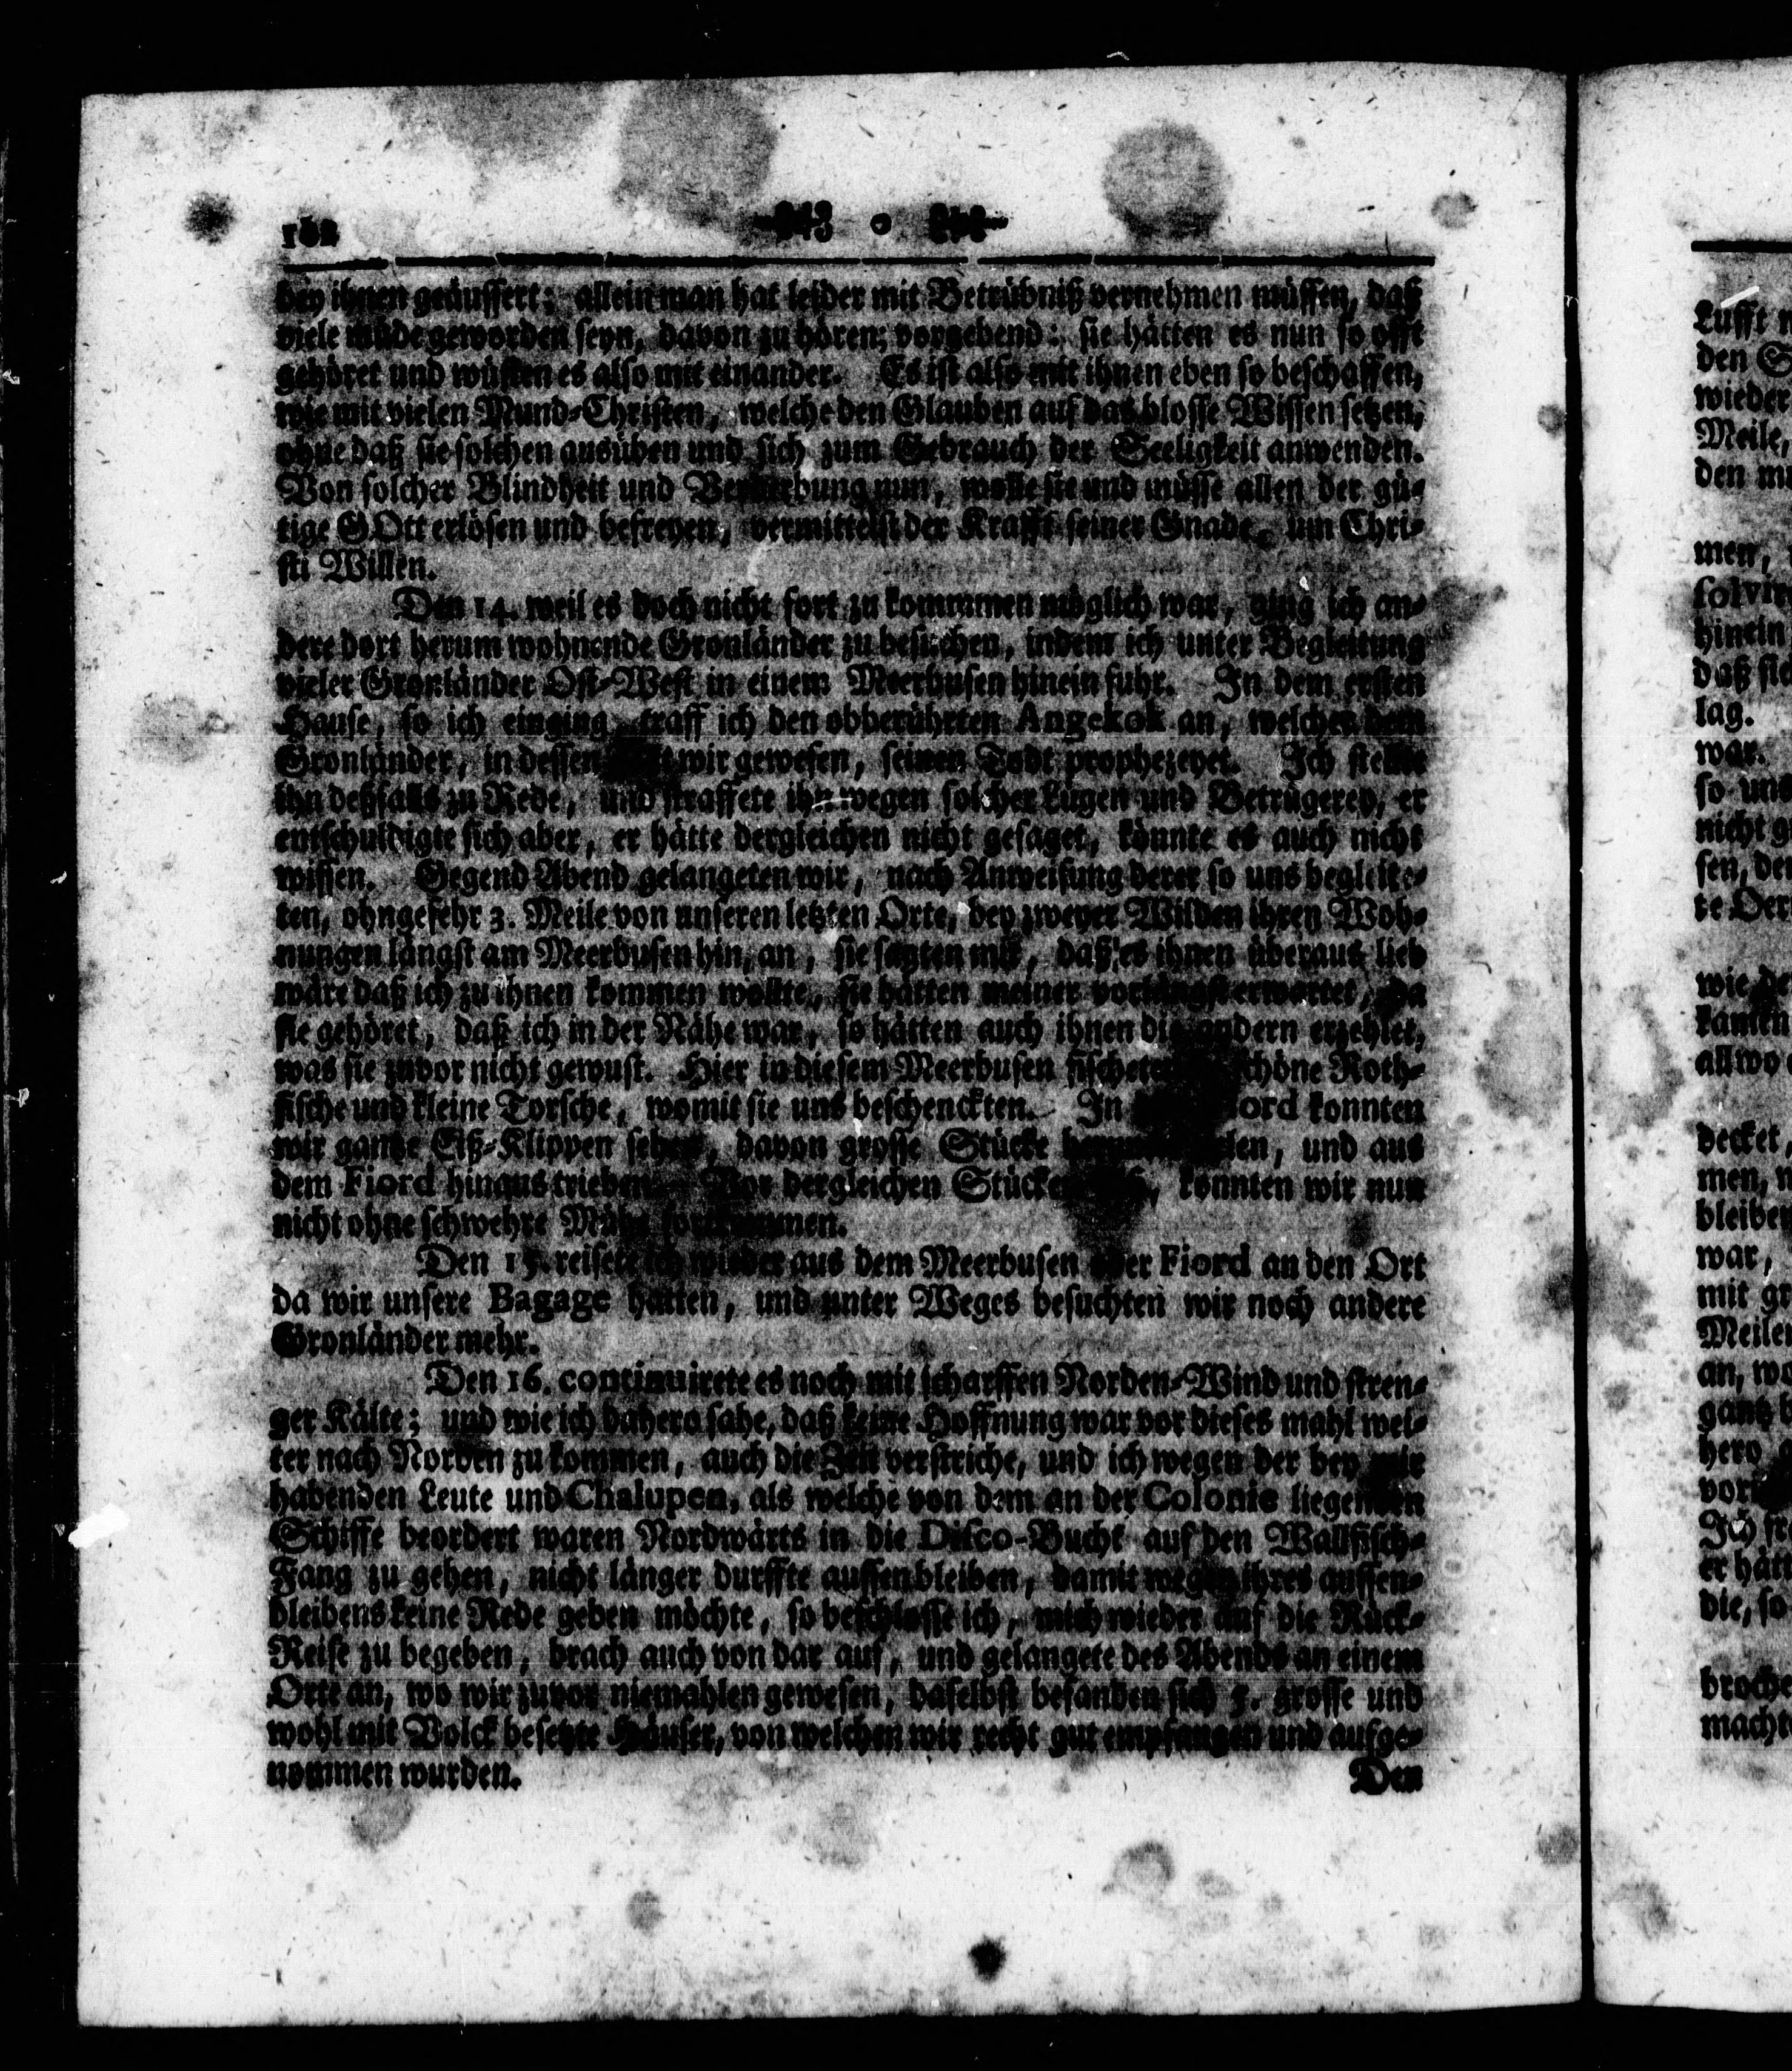 bey ihnen geäussert; allein man hat leider mit Betrübniß vernehmen müssen, daß
viele müde geworden seyn, davon zu hören; vorgebend: sie hätten es nun so offt
gehöret und wüsten es also mit einander. Es ist also mit ihnen eben so beschaffen,
wie mit vielen Mund-Christen, welche den Glauben auf das blosse Wissen setzen,
ohne daß sie solchen ausüben und sich zum Gebrauch der Seeligkeit anwenden.
Von solcher Blindheit und nun, wolle sie und müsse allen der gü-
tige GOtt erlösen und befreyen, vermittelst der Krafft seiner Gnade, um Chri-
sti Willen.
Den 14. weil es doch nicht fort zu kommmen möglich war, ging ich an-
dere dort herum wohnende Gronländer zu besuchen, indem ich unter Begleitung
vieler Gronländer Ost-West in einem Meerbusen hinein fuhr. In dem ersten
Hause, so ich einging, traff ich den obberührten Angekok an, welcher dem
Gronländer, in dessen wir gewesen, seinen Todt prophezeyet. Ich stellte
ihn deßfalls zu Rede, und straffete ihn wegen solcher Lügen und Betrügerey, er
entschuldigte sich aber, er hätte dergleichen nicht gesaget, könnte es auch nicht
wissen. Gegend Abend gelangeten wir, nach Anweisung derer so uns begleite-
ten, ohngefehr 3. Meile von unseren letzten Orte, bey zweyer Wilden ihren Woh-
nungen längst am Meerbusen hin, an, sie sagten mir, daß es ihnen überaus lieb
wäre daß ich zu ihnen kommen wollte, sie hätten meiner vorlängst erwartet, da
sie gehöret, daß ich in der Nähe war, so hätten auch ihnen die andern erzehlet,
was sie zuvor nicht gewust. Hier in diesem Meerbusen schöne Roth-
fische und kleine Torsche, womit sie uns beschenckten. In Fiord konnten
wir gantze Eiß-Klippen sehen, davon grosse Stücke und aus
dem Fiord hinaus trieben. Vor dergleichen Stücke konnten wir nun
nicht ohne schwehre Mühe fortkommen.
Den 15. reisete ich wieder aus dem Meerbusen oder Fiord an den Ort
da wir unsere Bagage hatten, und unter Weges besuchten wir noch andere
Gronländer mehr.
Den 16. continuirete es noch mit scharffen Norden-Wind und stren-
ger Kälte; und wie ich dahero sahe, daß keine Hoffnung war vor dieses mahl wei-
ter nach Norden zu kommen, auch die Zeit verstriche, und ich wegen der bey mir
habenden Leute und Chalupen, als welche von dem an der Colonie liegenden
Schiffe beordert waren Nordwärts in die Disco-Bucht auf den Wallfisch-
Fang zu gehen, nicht länger durffte aussenbleiben, damit wegen ihres aussen-
bleibens keine Rede geben möchte, so beschlosse ich, mich wieder auf die Rück-
Reise zu begeben, brach auch von dar auf, und gelangete des Abends an einem
Orte an, wo wir zuvor niemahlen gewesen, daselbst befanden sich 5. grosse und
wohl mit Volck besetzte Häuser, von welchen wir recht gut empfangen und aufge-
nommen wurden.
Den